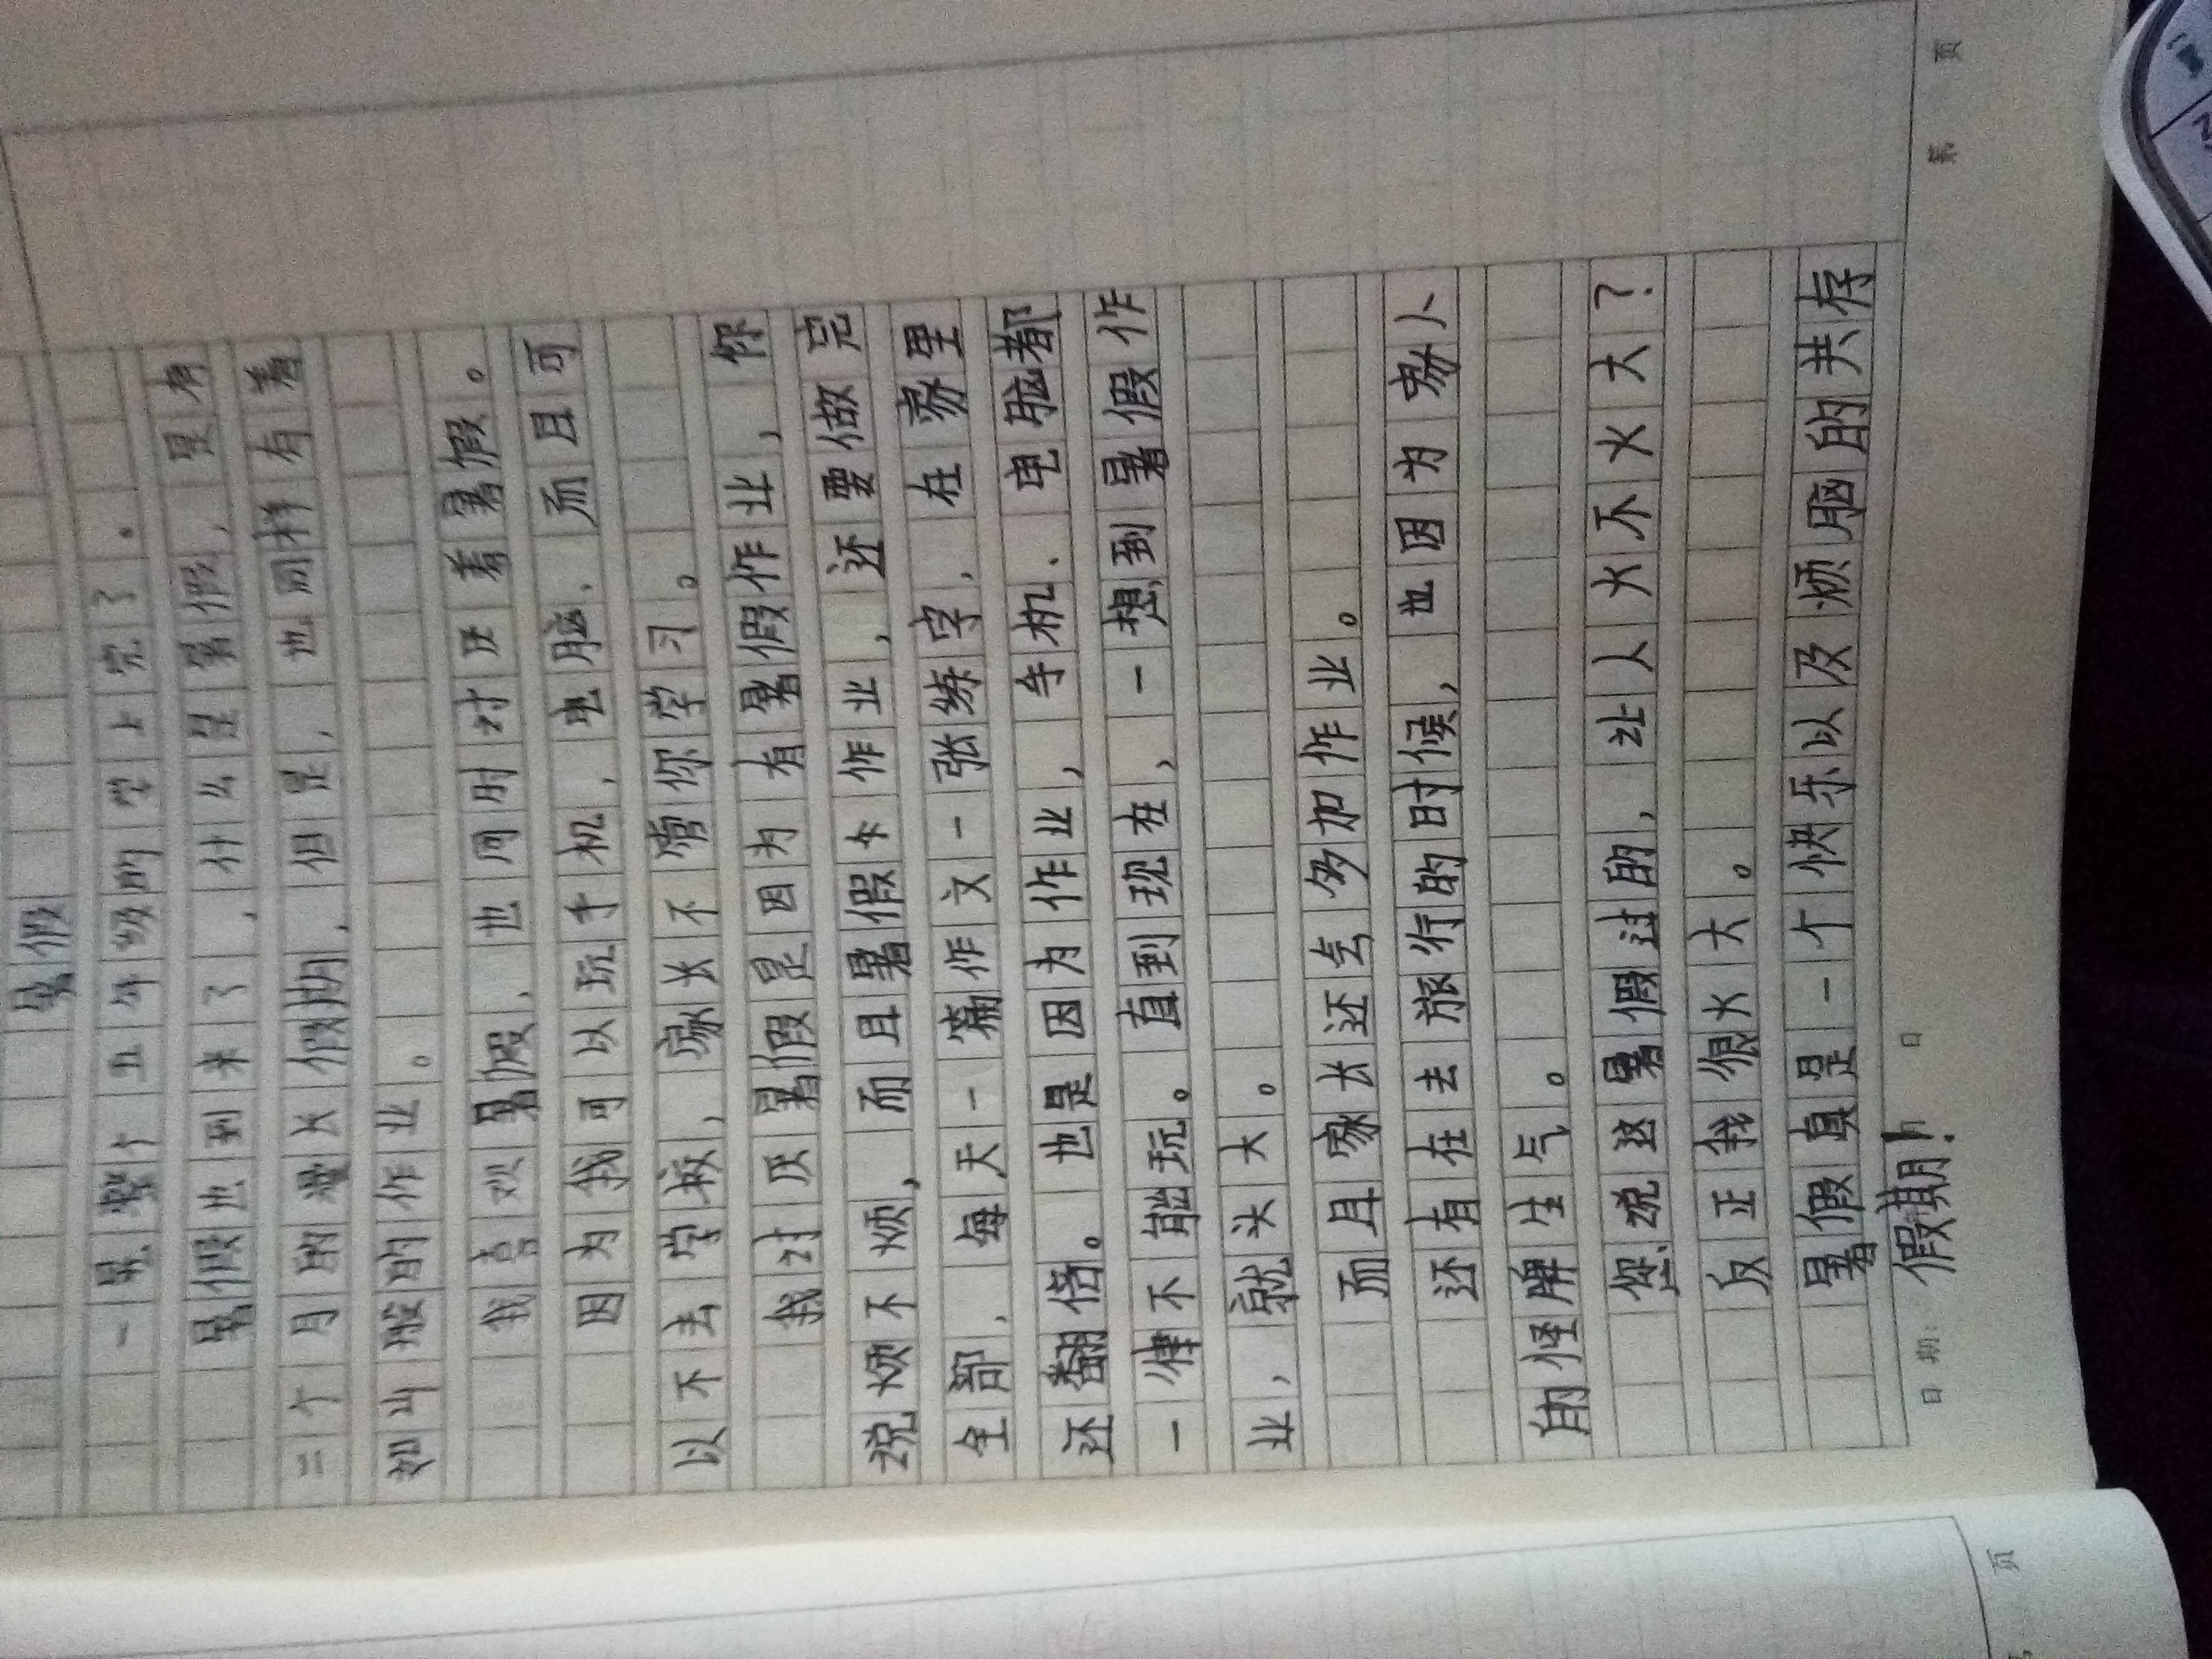 暑假
一晃，整个五年级的学上完了。
暑假也到来了，什么是暑假，是有
二个月的漫长假期，但是，也同样有着
如山般的作业。
我喜欢暑假，也同时讨厌着暑假。
因为我可以玩手机，电脑，而且可
以不去学校，家长不管你学习。
我讨厌暑假是因为有暑假作业，你
说烦不烦，而且暑假作业，还要做完
全部，每天一篇作文一张练字，在家里
还翻倍。也是因为作业，手机、电脑都
一律不能玩。直到现在，一想到暑假作
业，就头大。
而且家长还会多加作业。
还有在去旅行的时候，也因为家人
的怪脾生气。
您说这暑假过的，让人火不火大？
反正我很火大。
暑假真是一个快乐以及烦脑的共存
假期！
日期：
月
日
第
页
页